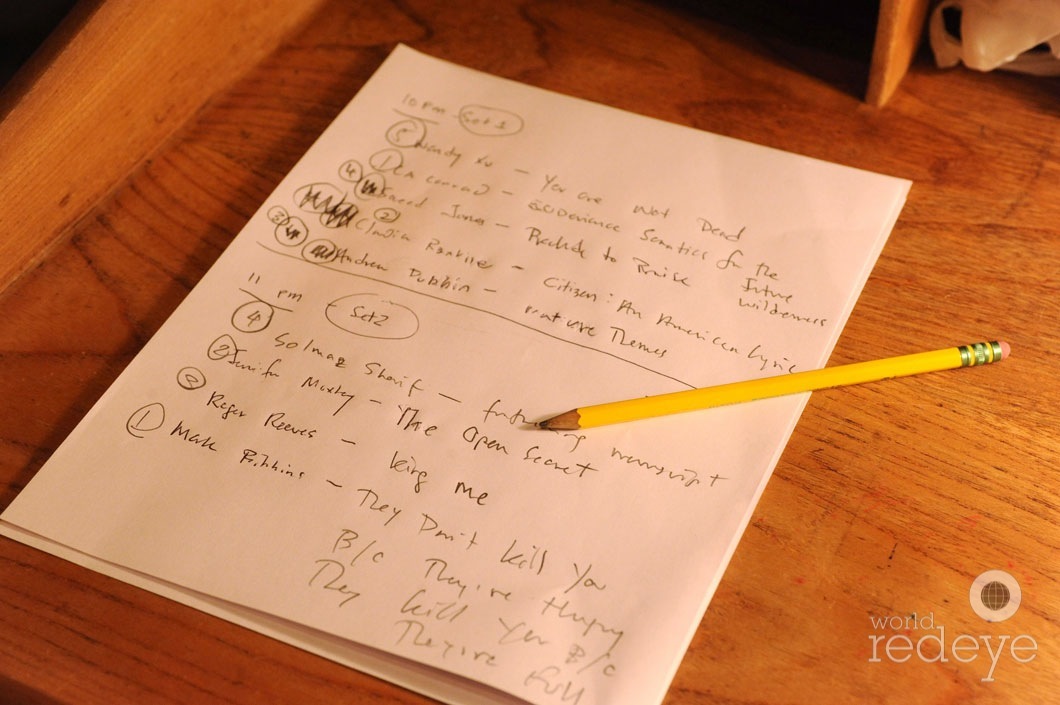 10 pm - Set 1
5 Wendy Xu - You are Not Dead
1 CA Conrad - Ecodeviance Somatics for the Future Wilderness
4 Saeed Jones - Prelude to Bruise
2 Claudia Rankine - Citizen: An American Lyric
3 Andrew Durbin - Mature Themes
11 pm - Set 2
4 Solmaz Sharif - manuscript
2 Jennifer Moxley - The Open Secret
3 Roger Reeves - King Me
1 Mark Bibbins - They Don't Kill You
B/c They're Hungry
They Kill You B/c
They're Full
world
redeye